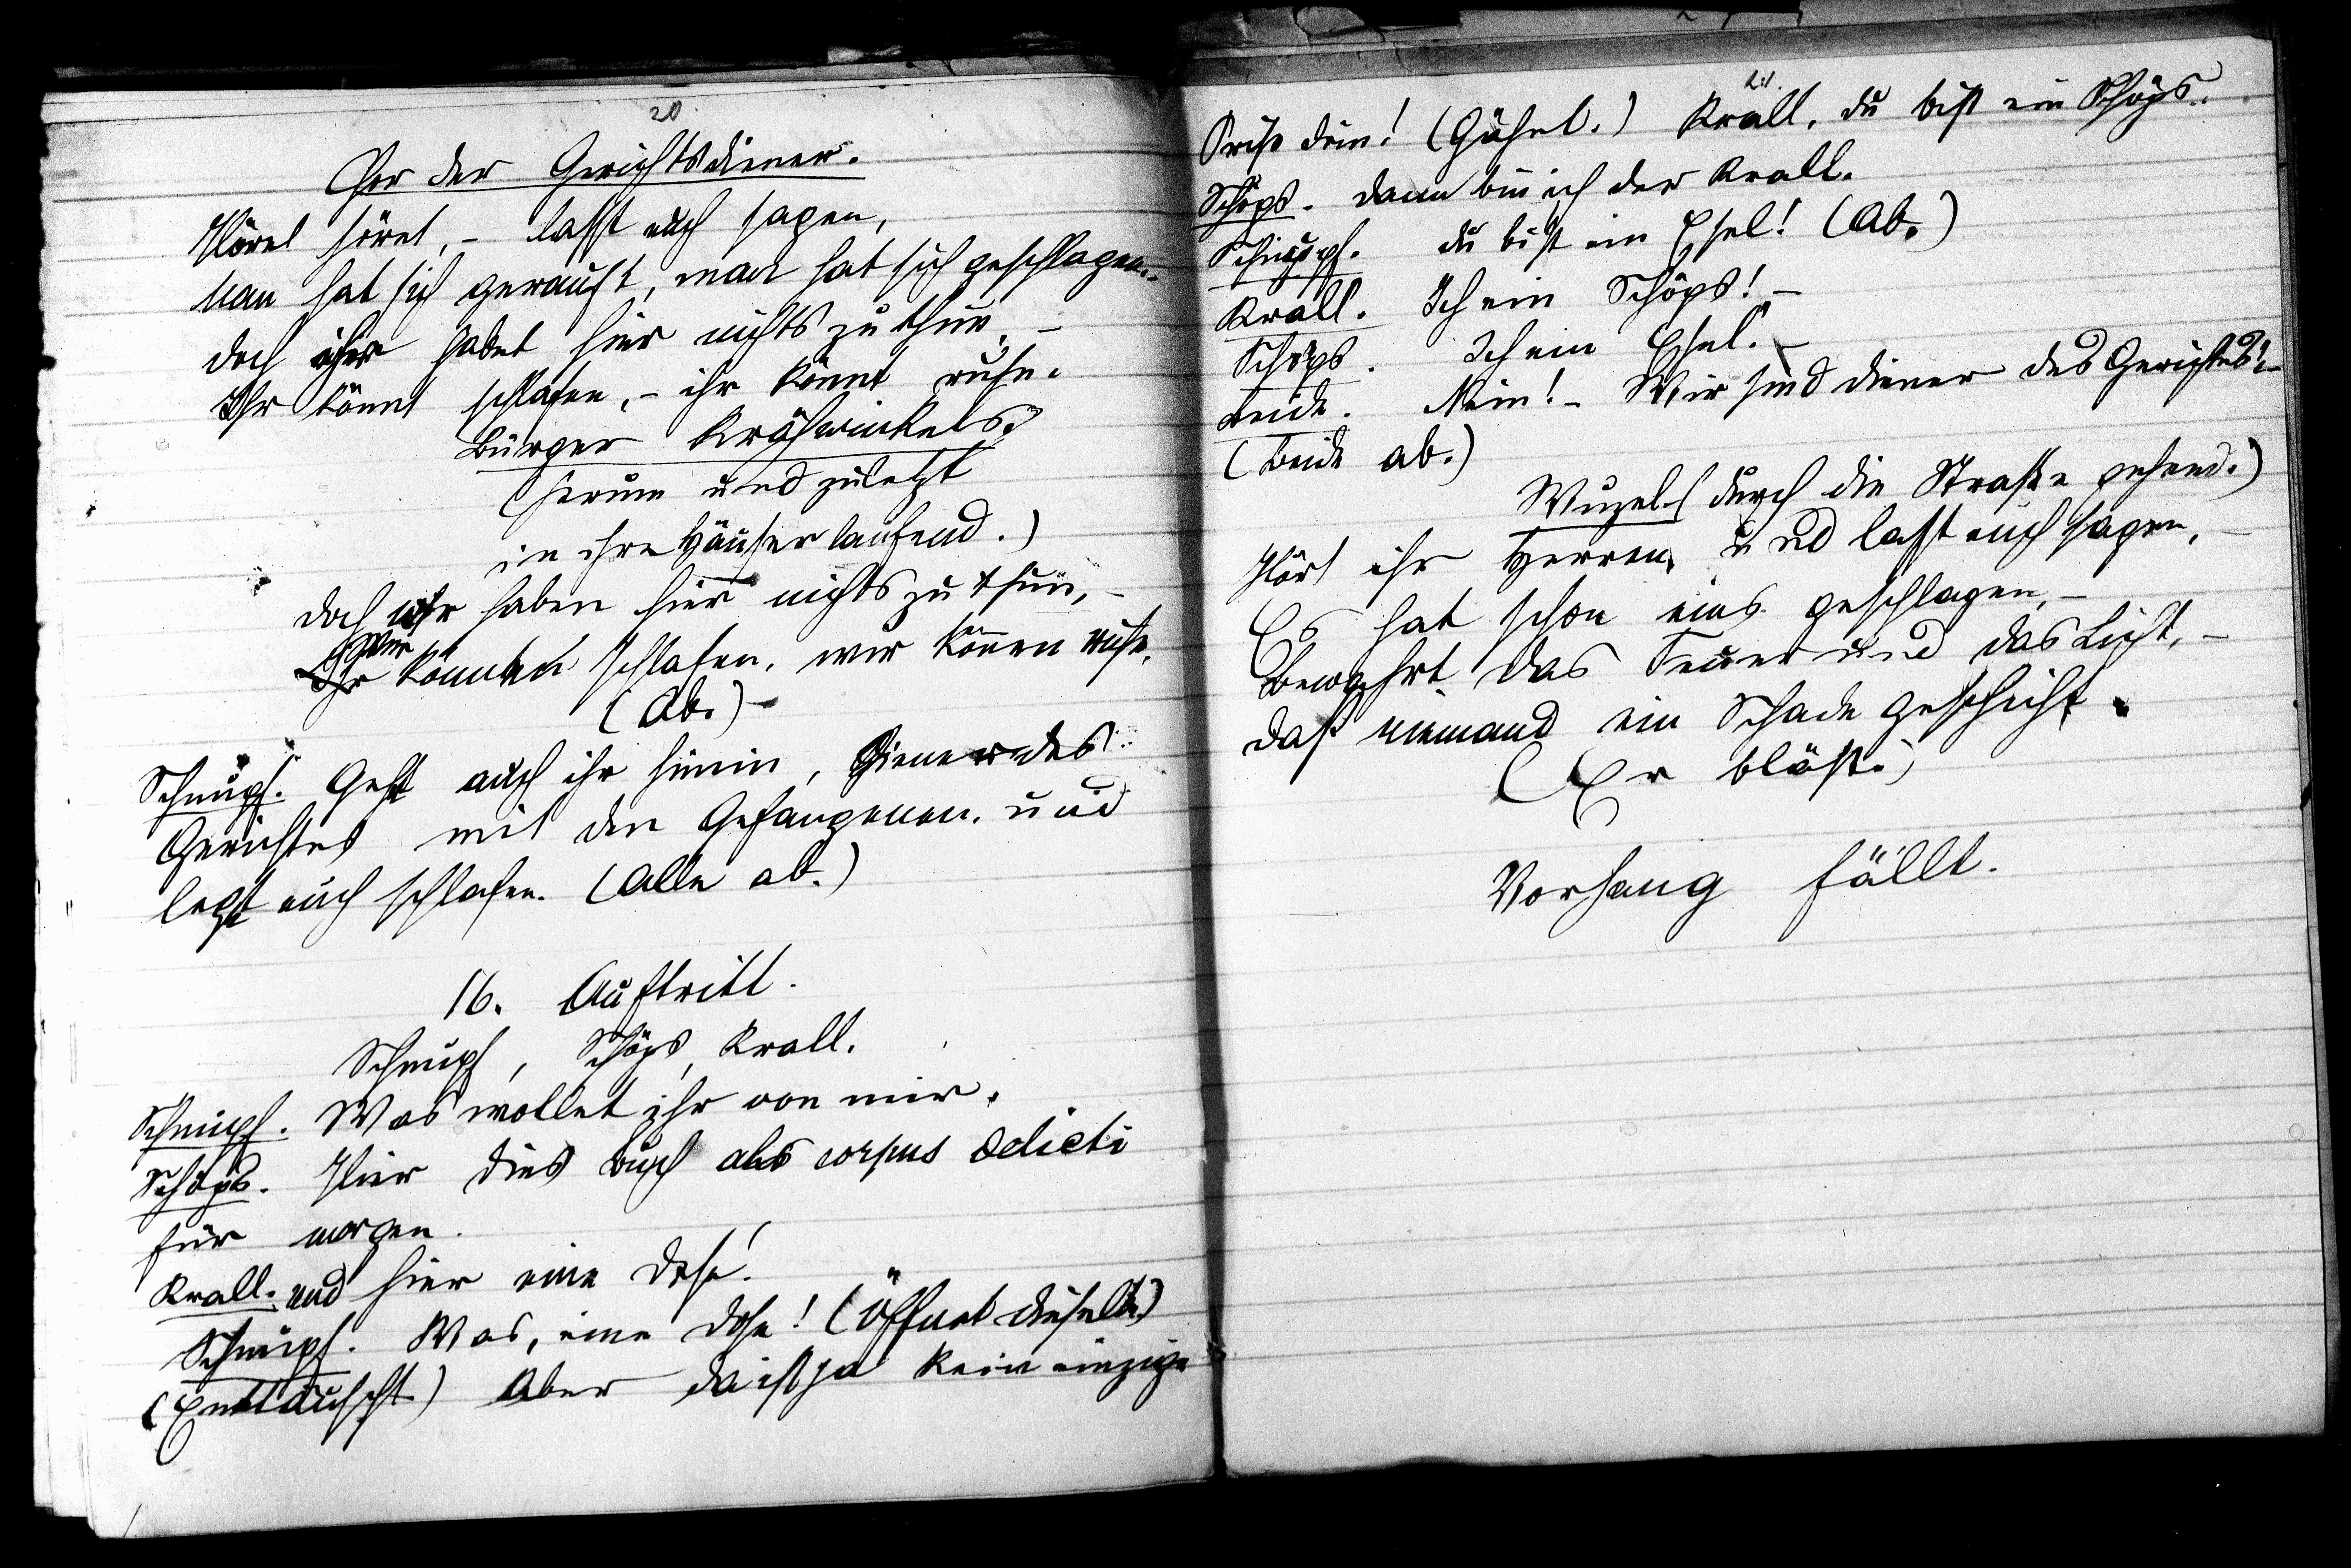 20.
Chor der Gerichtsdiener.
Höret höret, - lasst euch sagen,
Man hat sich gerauft, man hat sich geschlagen.-
doch ihr habet hier nichts zu thun, -
Ihr könnt schlafen, - ihr könnt ruhn.
Bürger Krähwinkels.
(herum und zuletzt
in ihre Häuser laufend.)
doch wir haben hier nichts zu thun, -
Wir
Ihr könnten schlafen, wir können ruhn.
(Ab.) -
Schnupf. Geht auch ihr hinein, Diener des
Gerichtes mit den Gefangenen, und
legt euch schlafen. (Alle ab.)
16. Auftritt.
Schnupf, Schöps, Krall.
Schnupf. Was wollet ihr von mir.
Schöps. Hier dies Buch als corpus delicti
für morgen.
Krall. und hier eine Dose!
Schnupf. Was, eine Dose! (Öffnet dieselbe)
(Enttäuscht.) Aber da ist ja kein einzige
21.
Prise drin! (Gähnt.) Krall, du bist ein Schöps.
Schöps. dann bin ich der Krall.
Schnupf. du bist ein Esel! (Ab.)
Krall. Ich ein Schöps! -
Schöps. Ich ein Esel. -
Beide. Nein! - Wir sind Diener des Gerichtes! -
(Beide ab.)
Wuzel (durch die Straße gehend.)
Hört ihr Herren, und lasst euch sagen, -
Es hat schon eins geschlagen, -
Bewahrt das Feuer und das Licht, -
daß niemand ein Schade geschicht.
(Er bläst.)
Vorhang fällt.